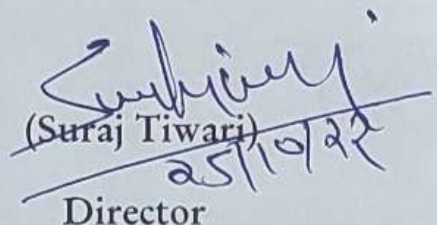 (Suraj Tiwari)
25/10/22
Director